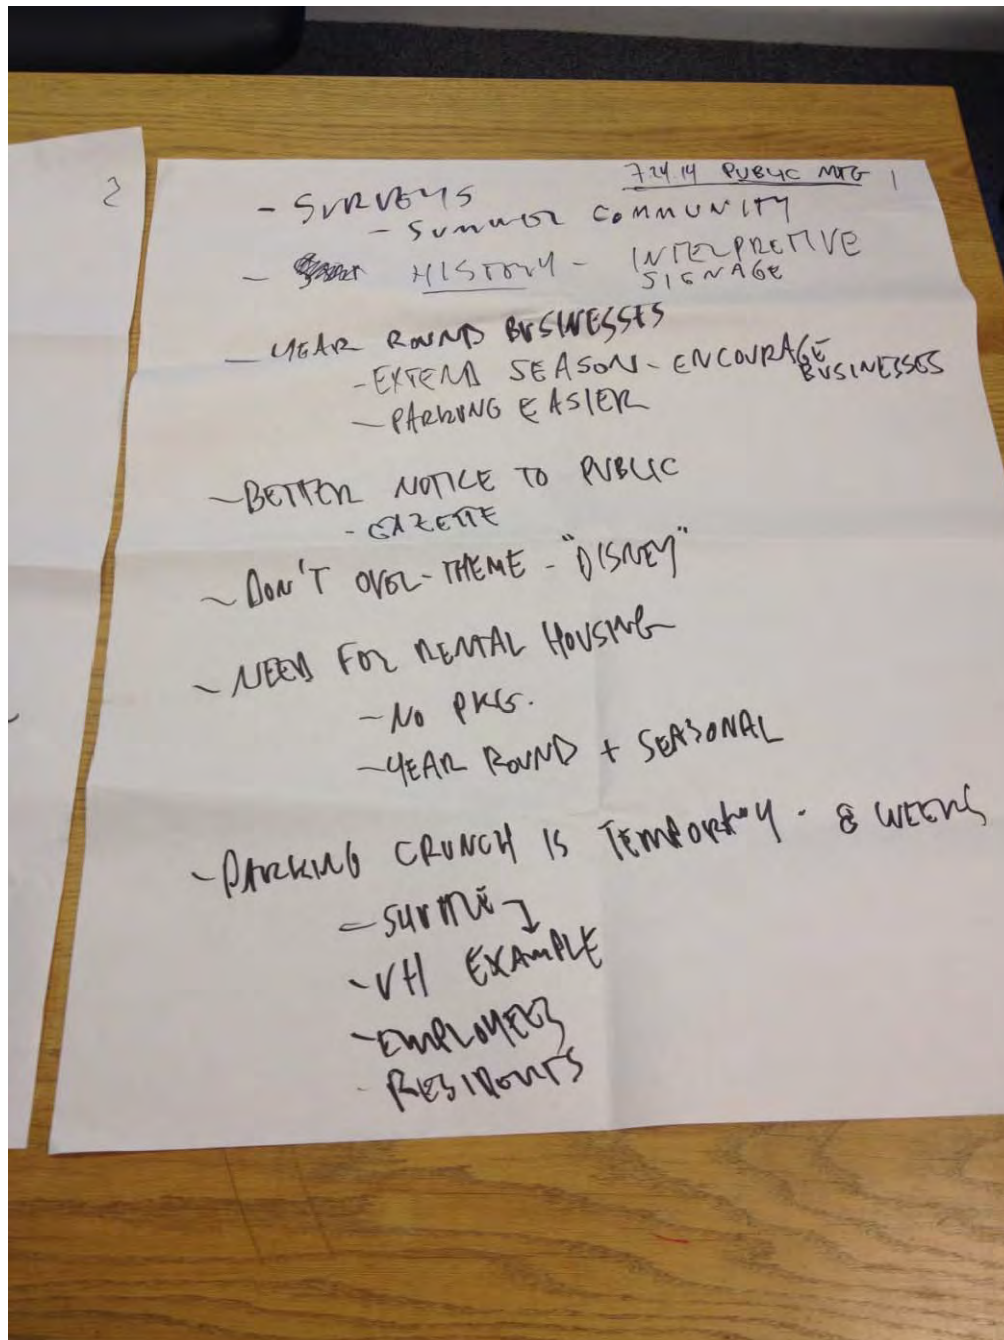 2
7.24.14 PUBLIC MTG 1
- SURVEYS
- SUMMER COMMUNITY
- HISTORY - INTERPRETIVE
SIGNAGE
- YEAR ROUND BUSINESSES
- EXTEND SEASON - ENCOURAGE
BUSINESSES
- PARKING EASIER
- BETTER NOTICE TO PUBLIC
- GAZETTE
- DON'T OVER-THEME - "DISNEY"
- NEED FOR RENTAL HOUSING
- NO PKG.
- YEAR ROUND + SEASONAL
- PARKING CRUNCH IS TEMPORARY - 8 WEEKS
- SHUTTLE
- VH EXAMPLE
- EMPLOYEES
- RESIDENTS